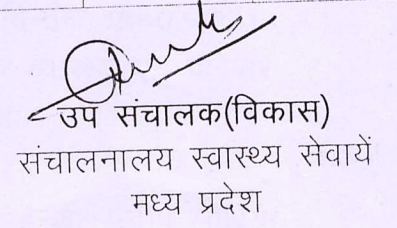 उप संचालक(विकास)
संचालनालय स्वास्थ्य सेवायें
मध्य प्रदेश